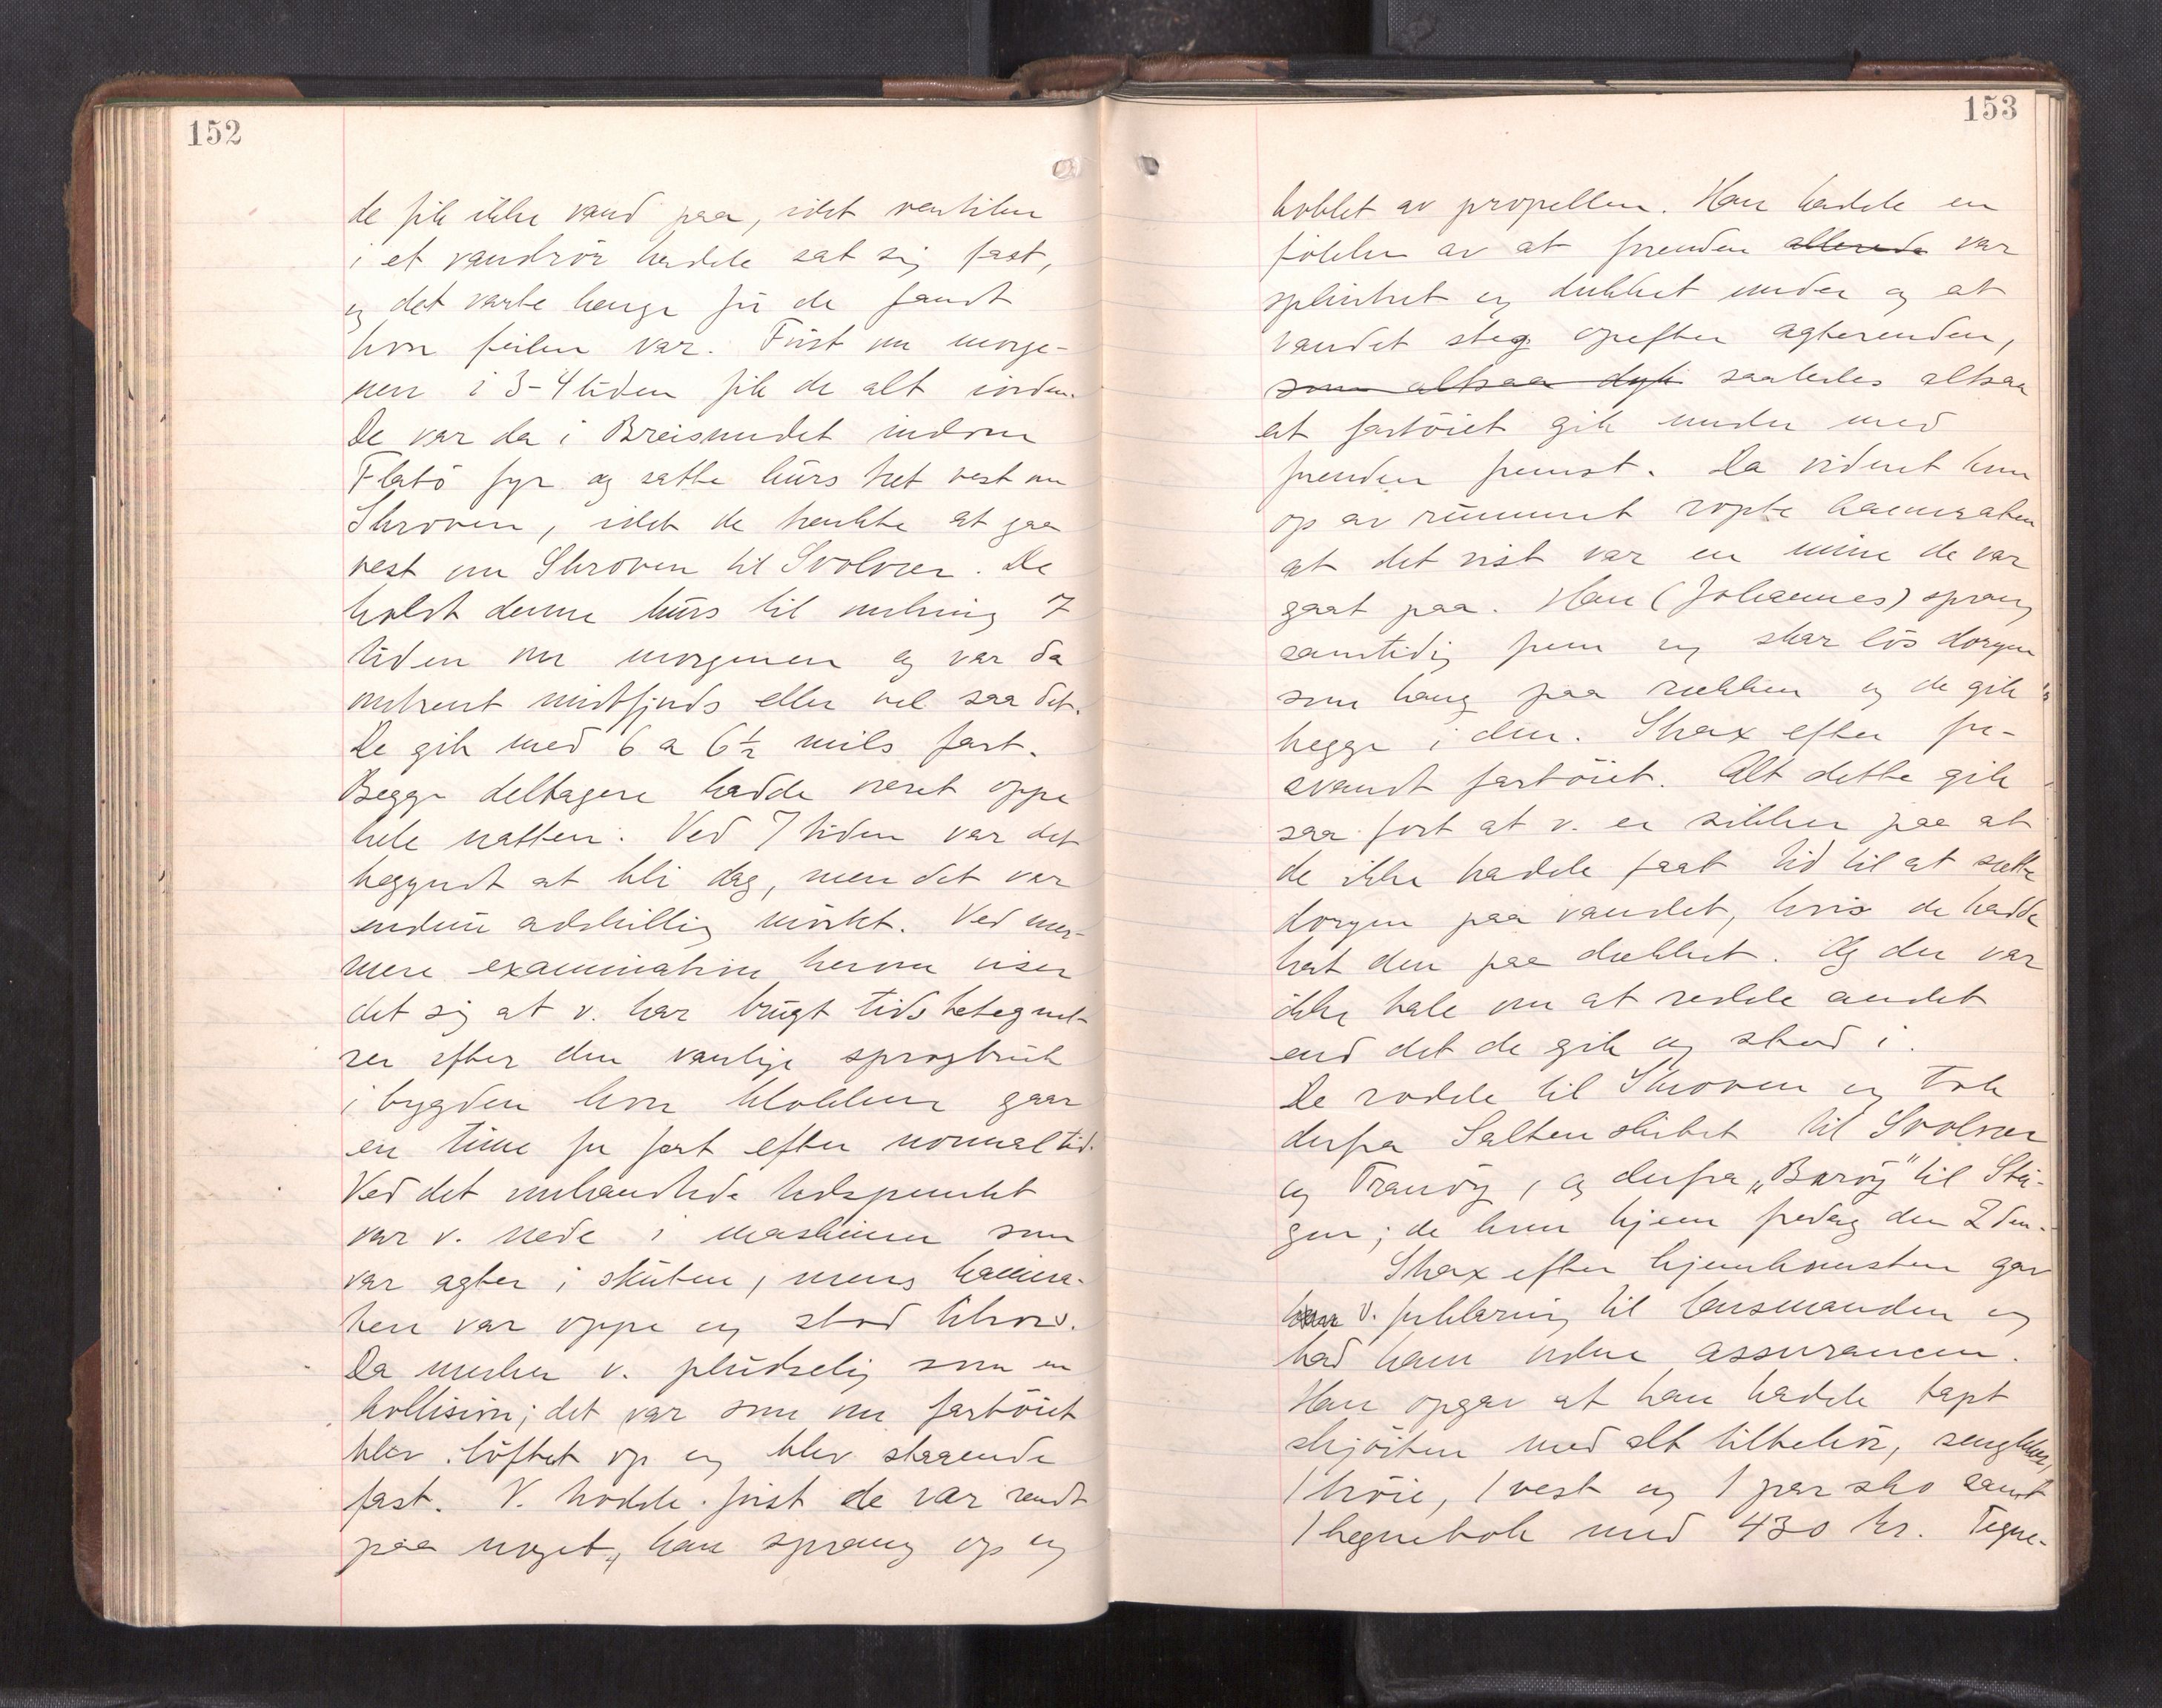 152
de fik ikke vand paa, idet ventilen
i et vandrör hadde sat sig fast,
og det varte længe för de fandt
hvor feilen var. Först om morge-
nen i 3-4 tiden fik de alt iorden.
De var da i Breisundet indom
Flatö fyr og satte kurs ret vest om
Skroven, idet de tænkte at gaa
vest om Skroven til Svolvær. De
holdt denne kurs til omkring 7
tiden om morgenen og var da
omtrent midtfjords eller vel saa det.
De gik med 6 a 6½ mils fart.
Begge deltagere hadde været oppe
hele natten. Ved 7 tiden var det
begyndt at bli dag, men det var
endnu adskillig mörkt. Ved nær-
mere examination herom viser
det sig at v. har brugt tidsbetegnel-
ser efter den vanlige sprogbruk
i bygden hvor klokken gaar
en time for fort efter normaltid.
Ved det omhandlede tidspunkt
var v. nede i maskinen som
var agter i skuten, mens kamera-
ten var oppe og stod tilrors.
Da merket v. pludselig som en
kollision; det var som om fartöiet
blev löftet op og blev staaende
fast. V. trodde först de var rendt
paa noget, han sprang op og
153
koblet av propellen. Han hadde en
fölelse av at forenden allerede var
splintret og dukket under og at
vandet steg opefter agterenden,
som altsaa dyk saaledes altsaa
at fartöiet gik under med
forenden forrest. Da vidnet kom
op av rummet ropte kameraten
at det vist var en mine de var
gaat paa. Han (Johannes) sprang
samtidig frem og skar lös doryen
som hang paa rækken og de gik
begge i den. Strax efter for-
svandt fartöiet. Alt dette gik
saa fort at v. er sikker paa at
de ikke hadde faat tid til at sætte
doryen paa vandet, hvis de hadde
hat den paa dækket. Og der var
ikke tale om at redde andet
end det de gik og stod i.
De rodde til Skroven og tok
derfra Saltenskibet til Svolvær
og Tranöy, og derfra „Baröy" til Stö-
gen; de kom hjem fredag den 2den.
Strax efter hjemkomsten gav
han v. forklaring til lensmanden og
bad ham ordne assurancen.
Han opgav at han hadde tapt
skjöiten med alt tilbehör, sengklær,
1 tröie, 1 vest og 1 par sko samt
1 tegnebok med 430 kr. Tegne-